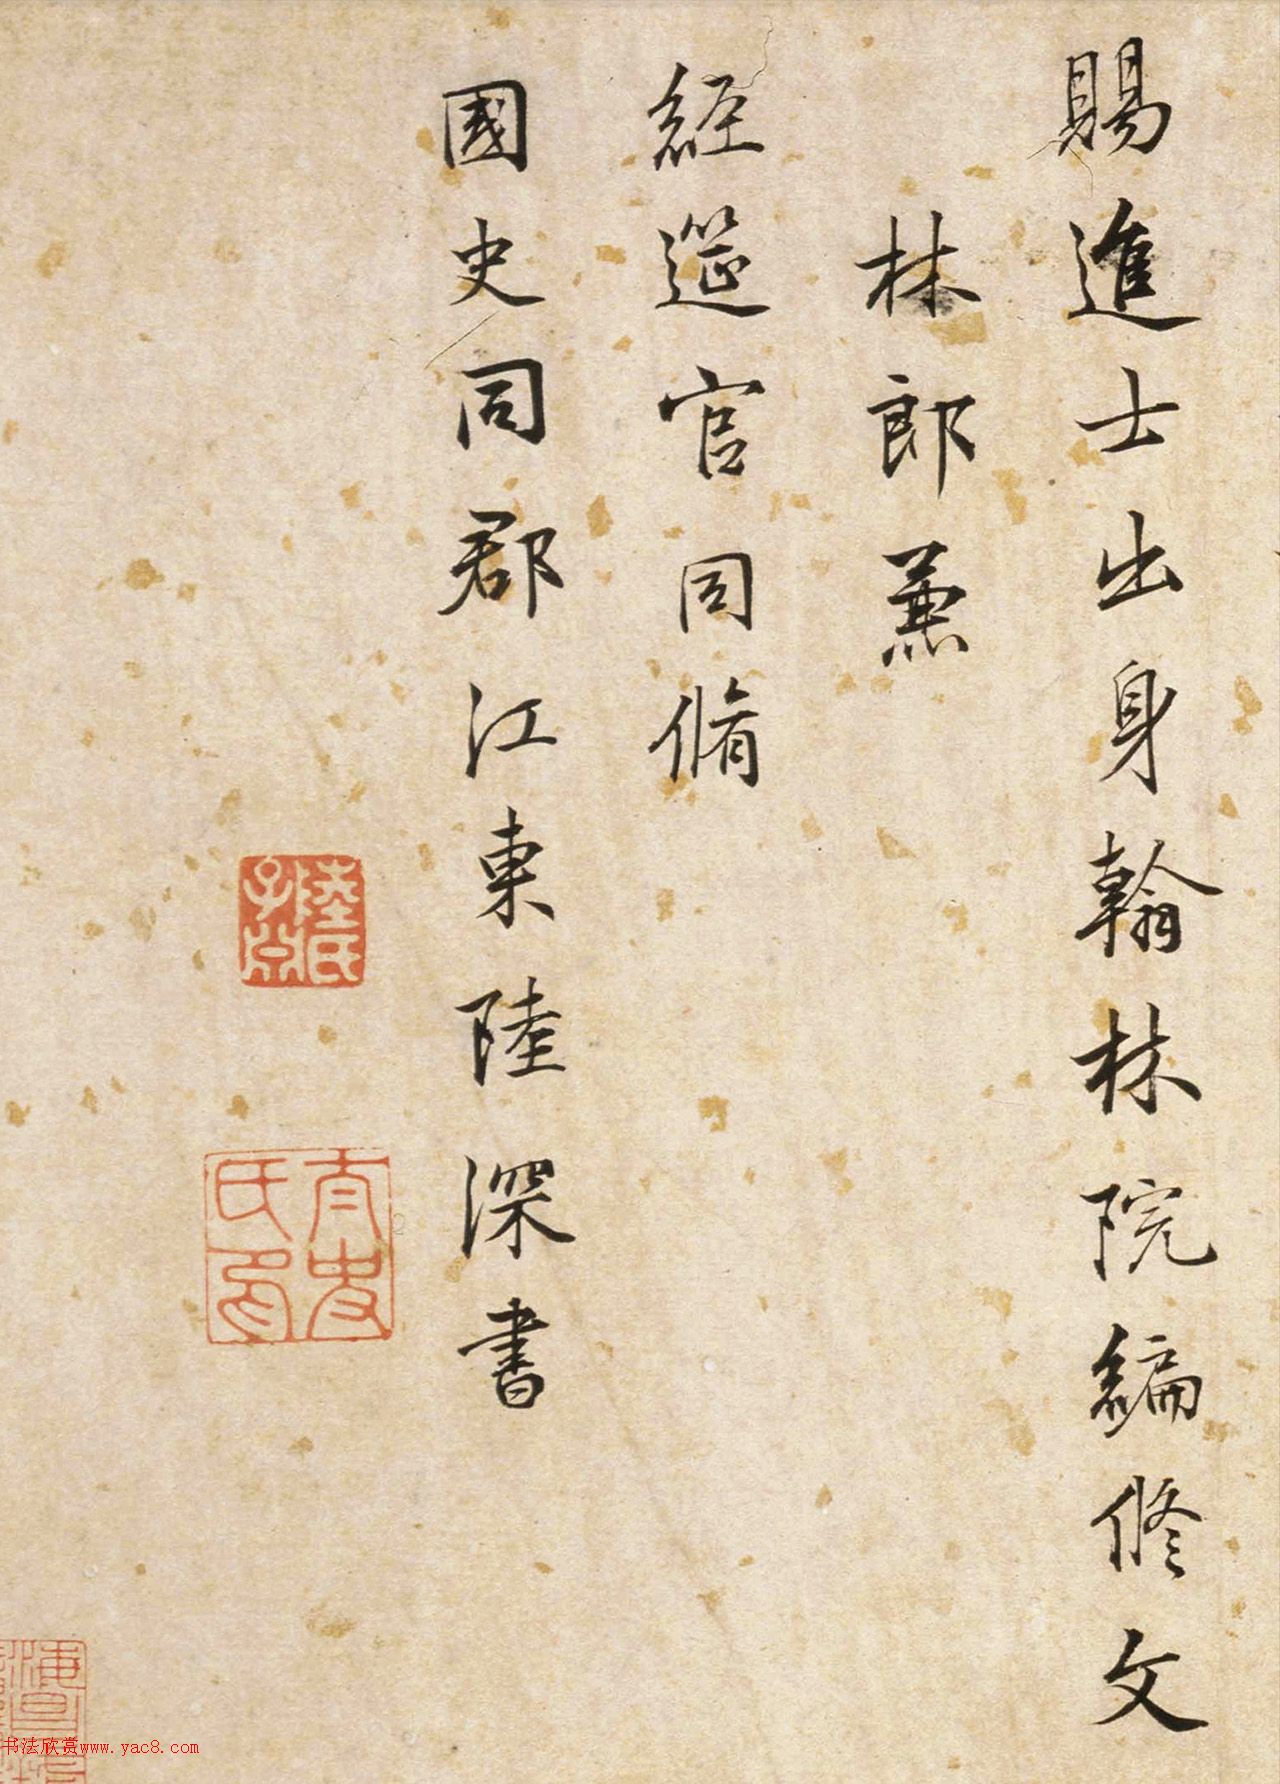 賜進士出身翰林院編修文
林郎兼
經筵官同脩
國史同郡江東陸深書
陸氏子淵
太史氏印
书法欣赏www.yac8.com